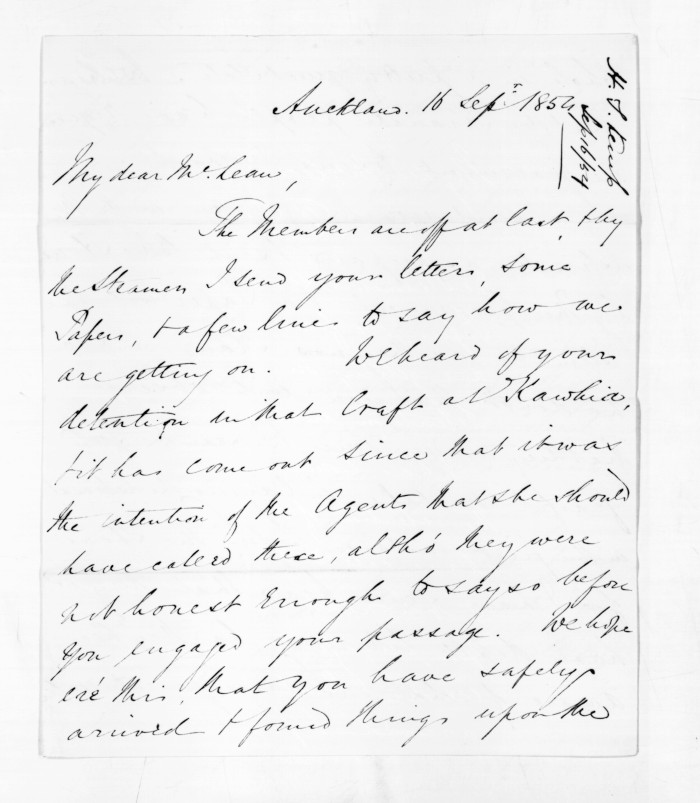 H. T. Kemp
Sep 16/54
Auckland. 16 Sepr. 1854
My dear McLean,
The Members are off at last, & by
the Steamer I send your letters, some
Papers, & a few lines to say how we
are getting on. We heard of your
detention in that Craft at Kawhia,
& it has come out since that it was
the intention of the Agents that she should
have called there, altho' they were
not honest enough to say so before
you engaged your passage. We hope
ere this, that you have safely
arrived & found things upon the